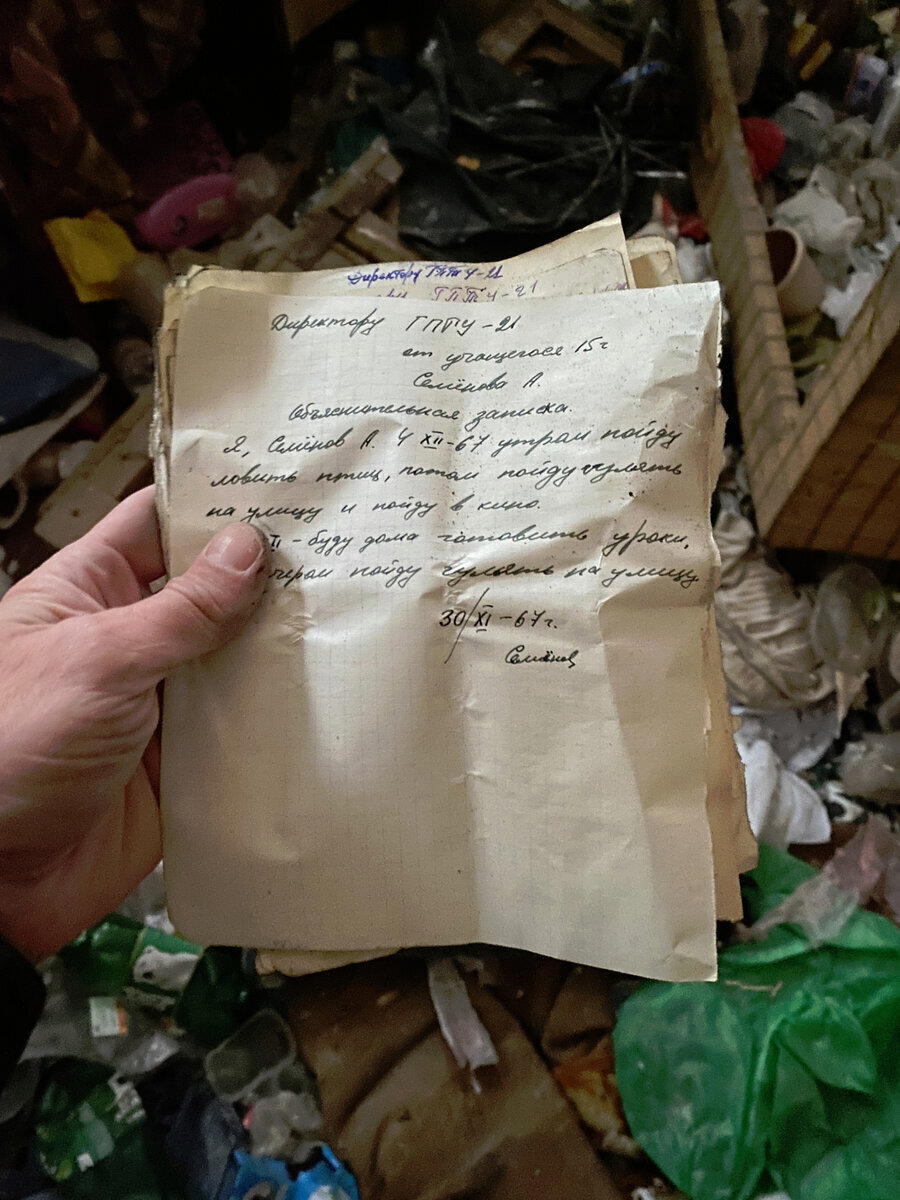 Директору ГПТУ-21
ГПТУ-21
Директору ГПТУ-21
от учащегося 15г
Семёнова А.
Объяснительная записка.
Я, Семёнов А. 4 XII-67 утром пойду
ловить птиц, потом пойду гулять
на улицу и пойду в кино.
II - буду дома готовить уроки,
чером пойду гулять на улицу
30/XI-67г.
Семёнов